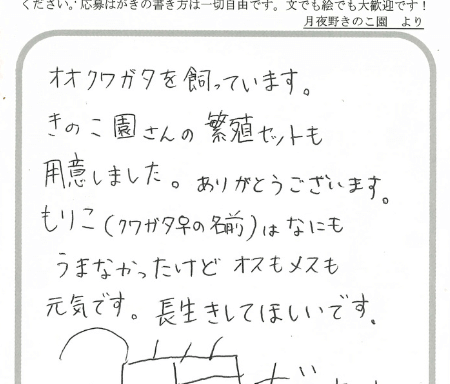 ください。応募はがきの書き方は一切自由です。文でも絵でも大歓迎です!
月夜野きのこ園 より
オオクワガタを飼っています。
きのこ園さんの繁殖セットも
用意しました。ありがとうございます。
もりこ(クワガタ♀の名前)はなにも
うまなかったけど オスもメスも
元気です。長生きしてほしいです。